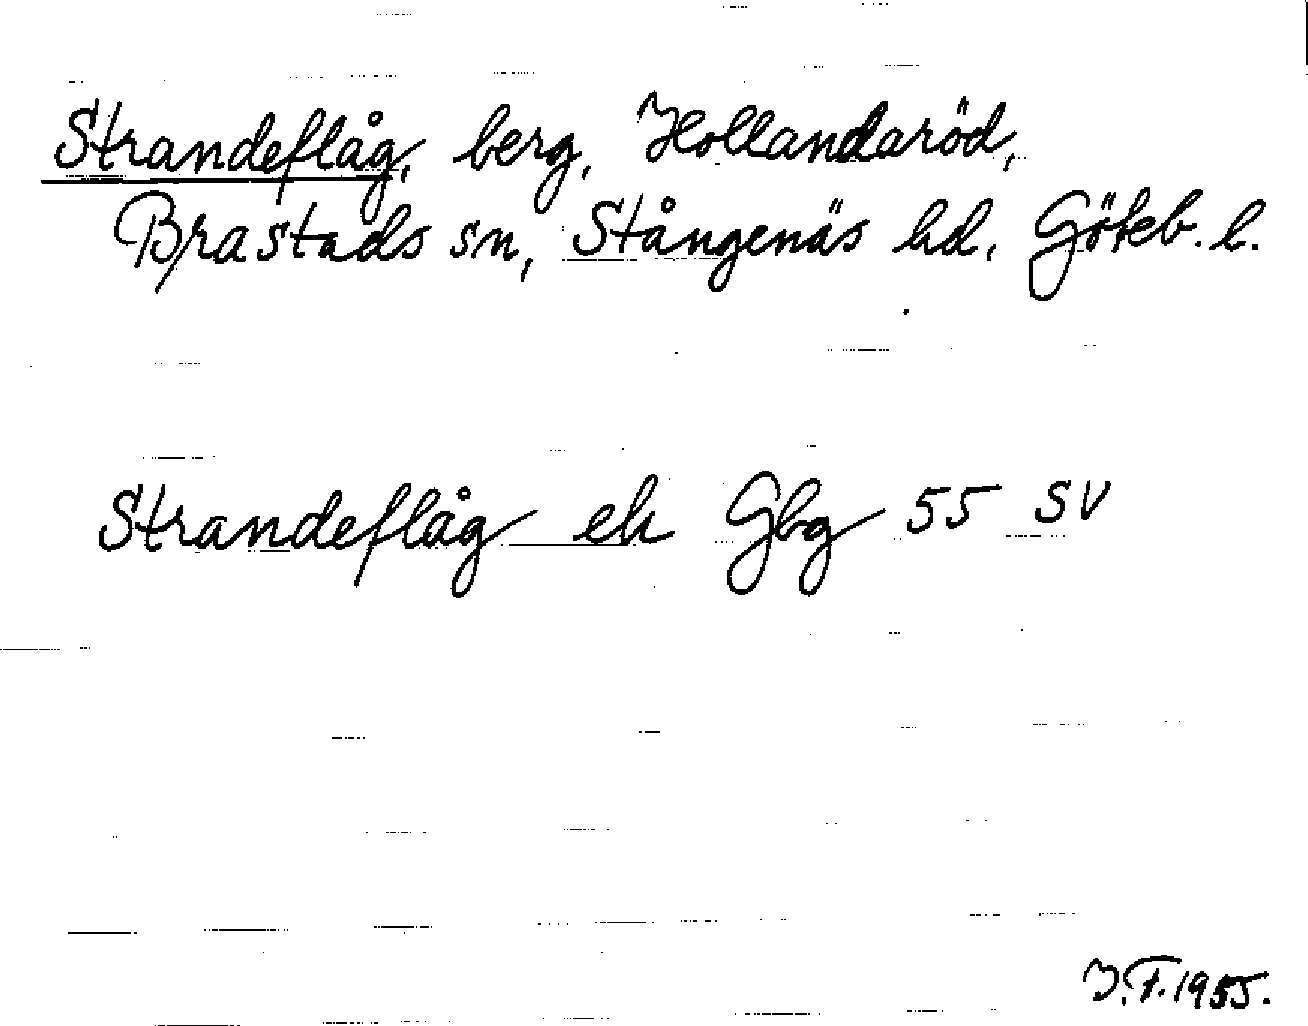 Strandeflåg, berg, Hollandaröd,
Brastads sn, Stångenäs hd. Göteb. l.
Strandeflåg ek Gbg 55 SV
I.F. 1955.